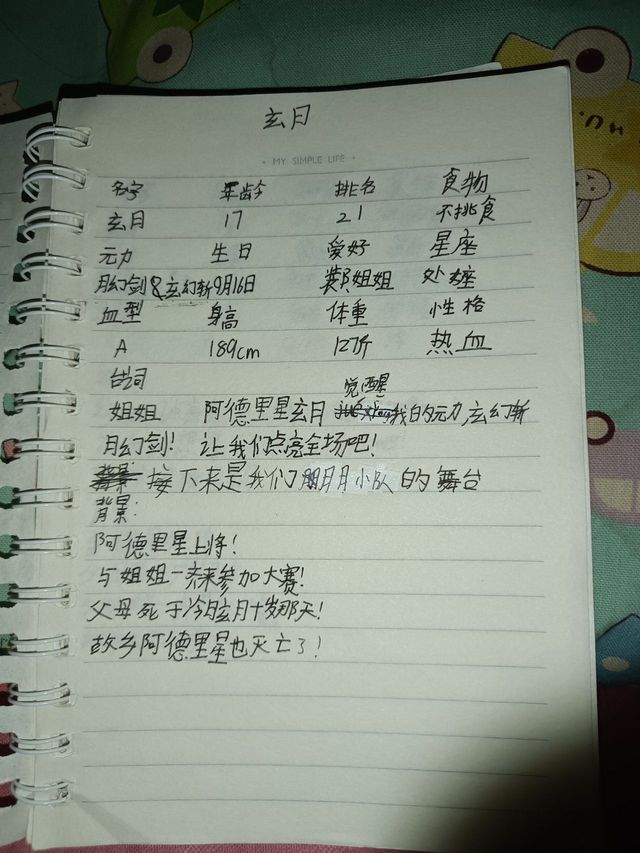 玄月
MY SIMPLE LIFE
名字 年龄 排名 食物
玄月 17 21 不挑食
元力 生日 爱好 星座
月幻剑&玄幻斩 9月16日 姐姐 处女座
血型 身高 体重 性格
A 189cm 127斤 热血
台词 觉醒
姐姐 阿德里星玄月 我的元力,玄幻斩
月幻剑! 让我们点亮全场吧!
接下来是我们 月小队的舞台
背景:
阿德里星上将!
与姐姐一起来参加大赛!
父母死于冷月玄月十岁那天!
故乡阿德里星也灭亡了!